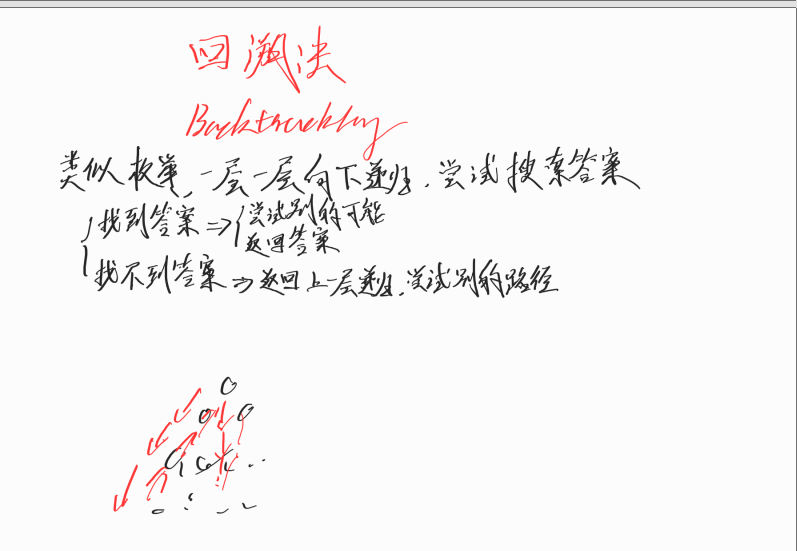 回溯法
Backtracking
类似枚举,一层一层向下递归,尝试搜索答案
找到答案 => 尝试别的可能
返回答案
找不到答案 => 返回上一层递归,尝试别的路径